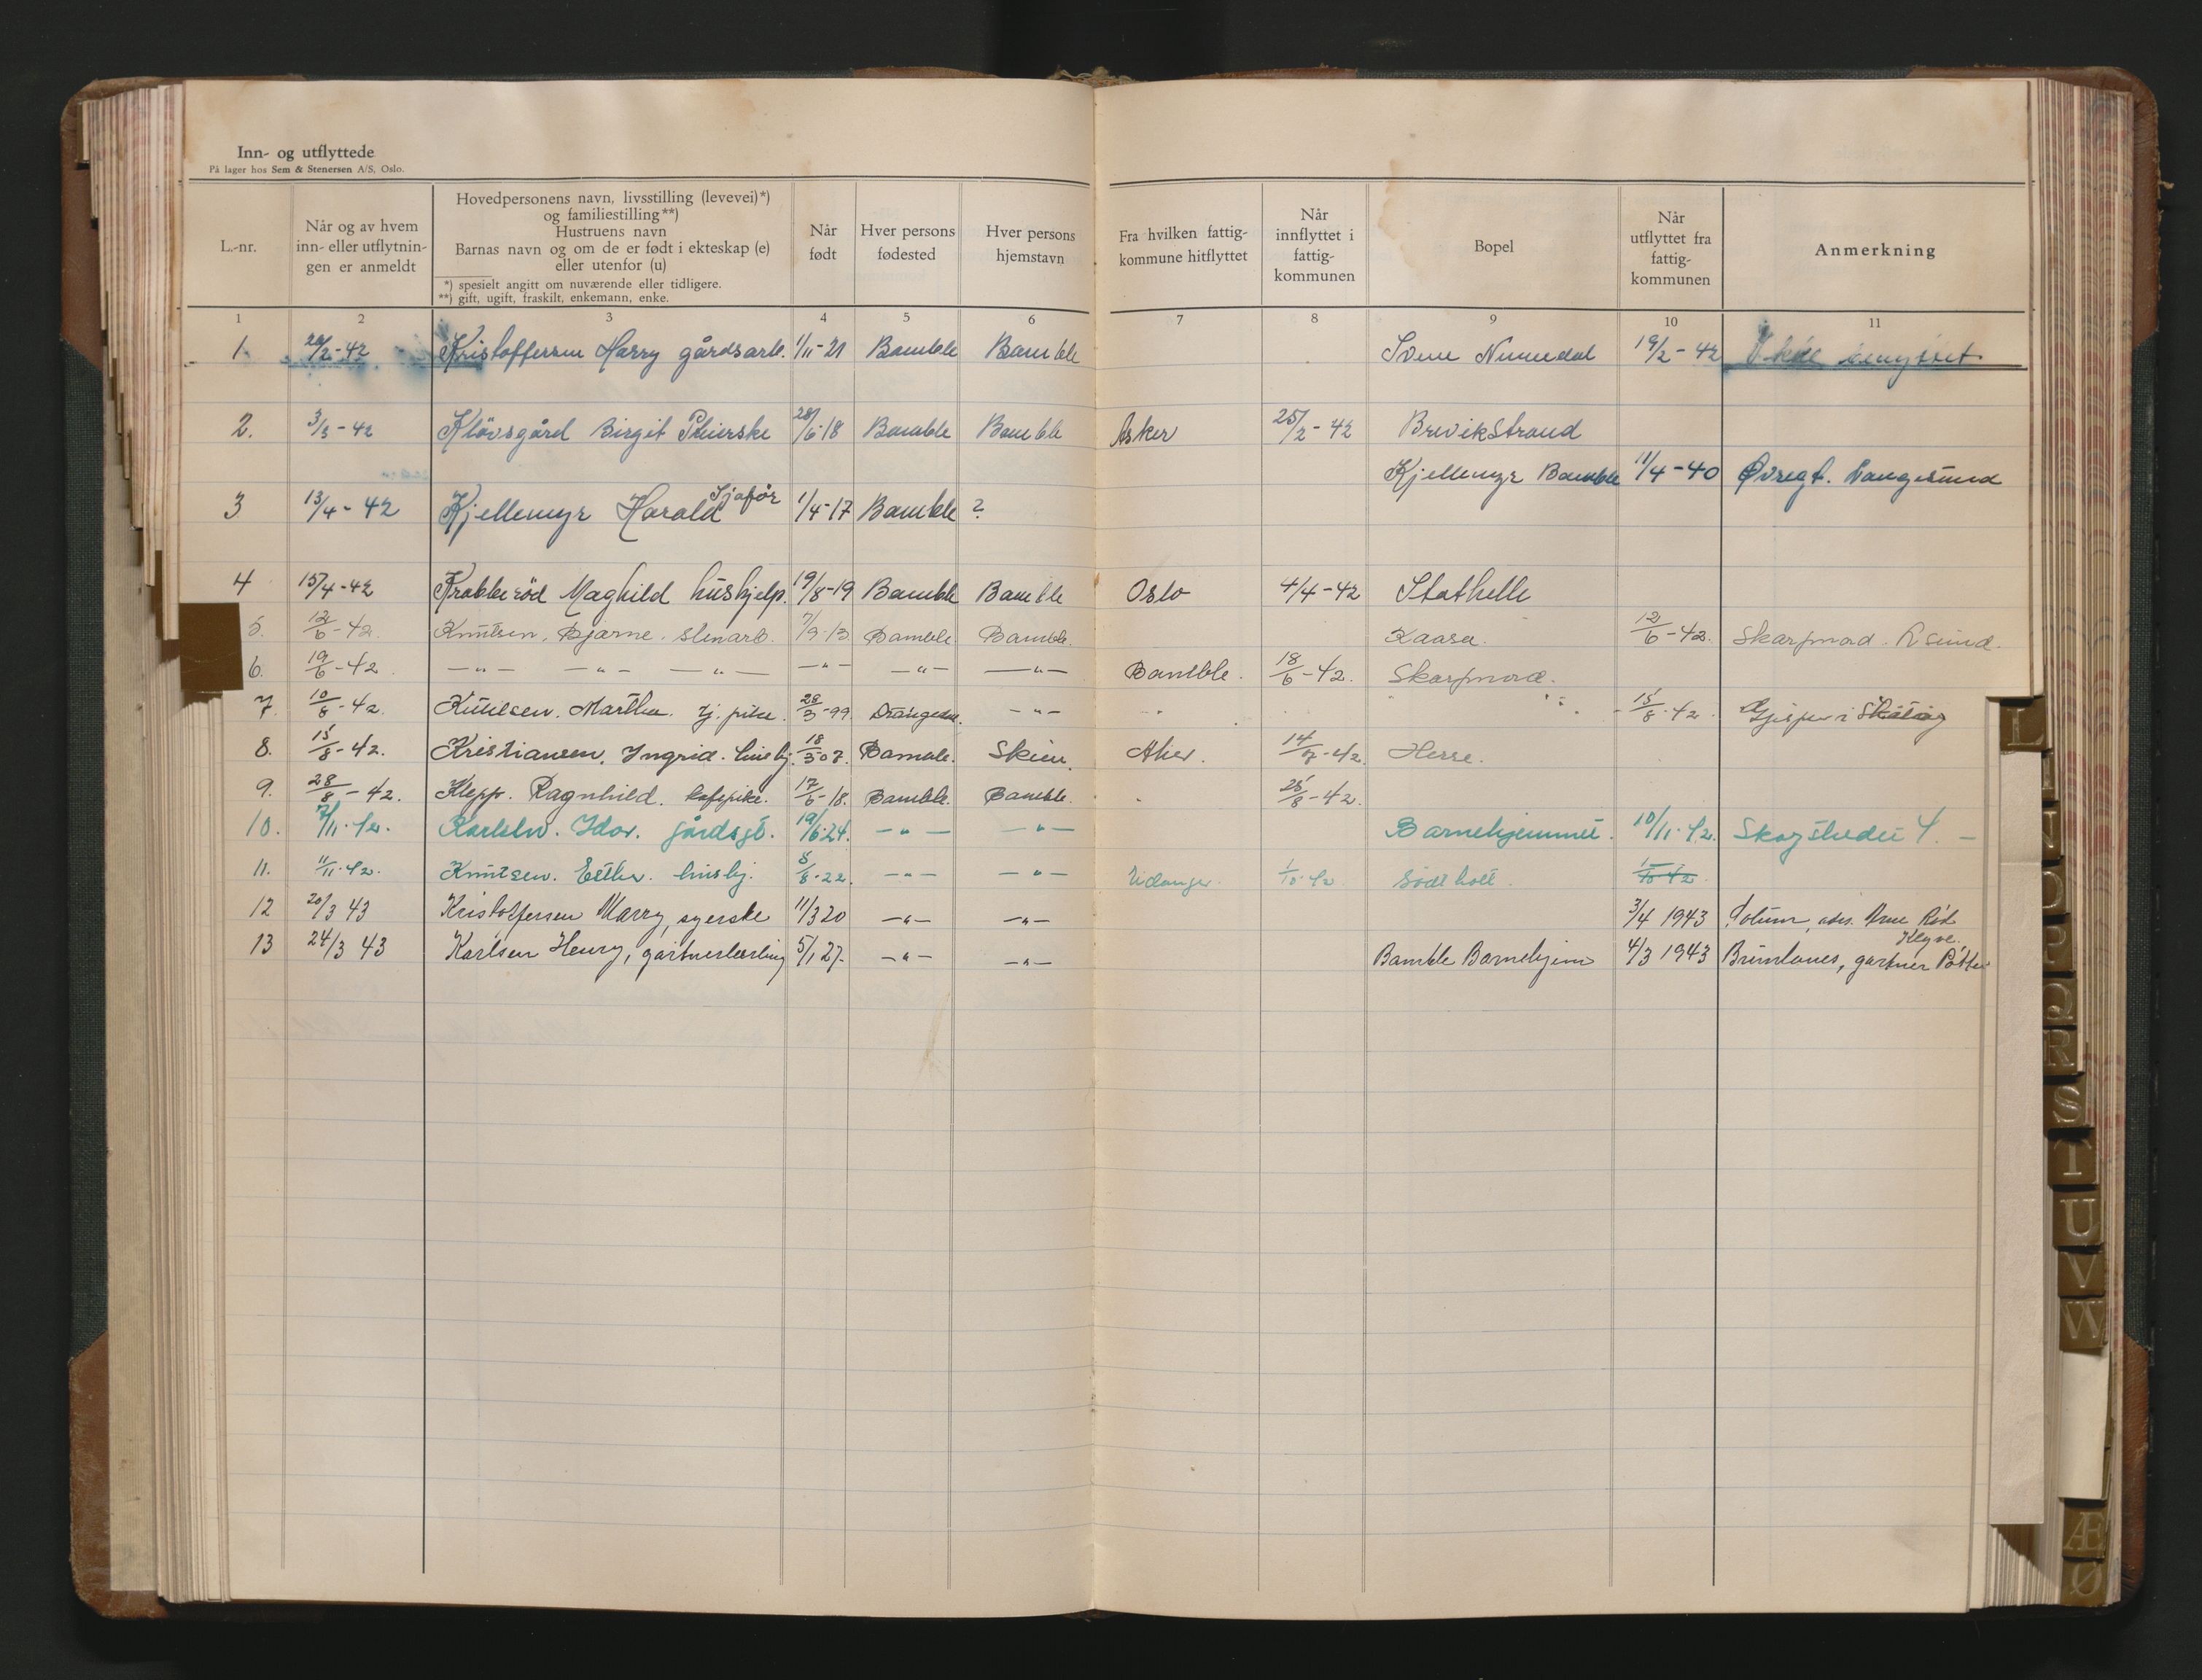 Inn- og utflyttede
På lager hos Sem & Stenersen A/S, Oslo.
L.-nr.
Når og av hvem inn- eller utflytnin-gen er anmeldt
Hovedpersonens navn, livsstilling (levevei)*)
og familiestilling**)
Hustruens navn
Barnas navn og om de er født i ekteskap (e)
eller utenfor (u)
*) spesielt angitt om nuværende eller tidligere.
**) gift, ugift, fraskilt, enkemann, enke.
Når født
Hver persons fødested
Hver persons hjemstavn
Fra hvilken fattig-kommune hitflyttet
Når innflyttet i fattig-kommunen
Bopel
Når utflyttet fra fattig-kommunen
Anmerkning
1 2 3 4 5 6 7 8 9 10 11
1. 20/2-42 Kristoffersen Harry gårdsarb. 1/11-21 Bamble Bamble Svene Numedal 19/2-42
2. 3/3-42 Klövsgård Birgit Pleierske 28/6-18 Bamble Bamble Asker 25/2-42 Brevikstrand
Kjellemyr Bamble 11/4-40 Øvregt. Langesund
3 13/4-42 Kjellemyr Harald Sjafør 1/4-17 Bamble ?
4 15/4-42 Krabberöd Maghild hushjelp. 19/8-19 Bamble Bamble Oslo 4/4-42 Stathelle
5. 12/6-42. Knutsen. Bjarne. stenarb. 7/9-13 Bamble Bamble. Kaasa. 12/6-42. Skarpnord. L sund.
6. 19/6-42. —„— —„— —„— —„— —„— —„— Bamble. 18/6-42. Skarpnord.
7. 10/8-42. Knutsen. Martha. tj. pike. 28/3-99 Drangedal. —„— 15/8-42.
8. 15/8-42. Kristiansen, Ingrid. hushj. 18/3-07. Bamble. Skien. Aker. 14/7-42. Herre.
9. 28/8-42. Klepp. Ragnhild. kafepike. 17/6-18. Bamble. Bamble. 25/8-42.
10. 7/11-42. Karlsen. Idar. gårdsgt. 19/6-24. —„— —„— Barnehjemmet. 10/11-42.
11. 11/11-42. Knutsen. Esther. hushj. 5/8-22. —„— —„— Eidanger. 1/10-42 1/10-42.
12 20/3 43 Kristoffersen Marry, syerske 11/3 20 —„— —„— 3/4 1943 Solum, adr. Arne Rød
Klyve.
13 24/3 43 Karlsen Henry, gartnerlærling 5/1 27. —„— —„— Bamble Barnehjem 4/3 1943 Brunlanes, gartner
L
N
O
P
Q
R
S
T
U
V
W
Æ
Ø